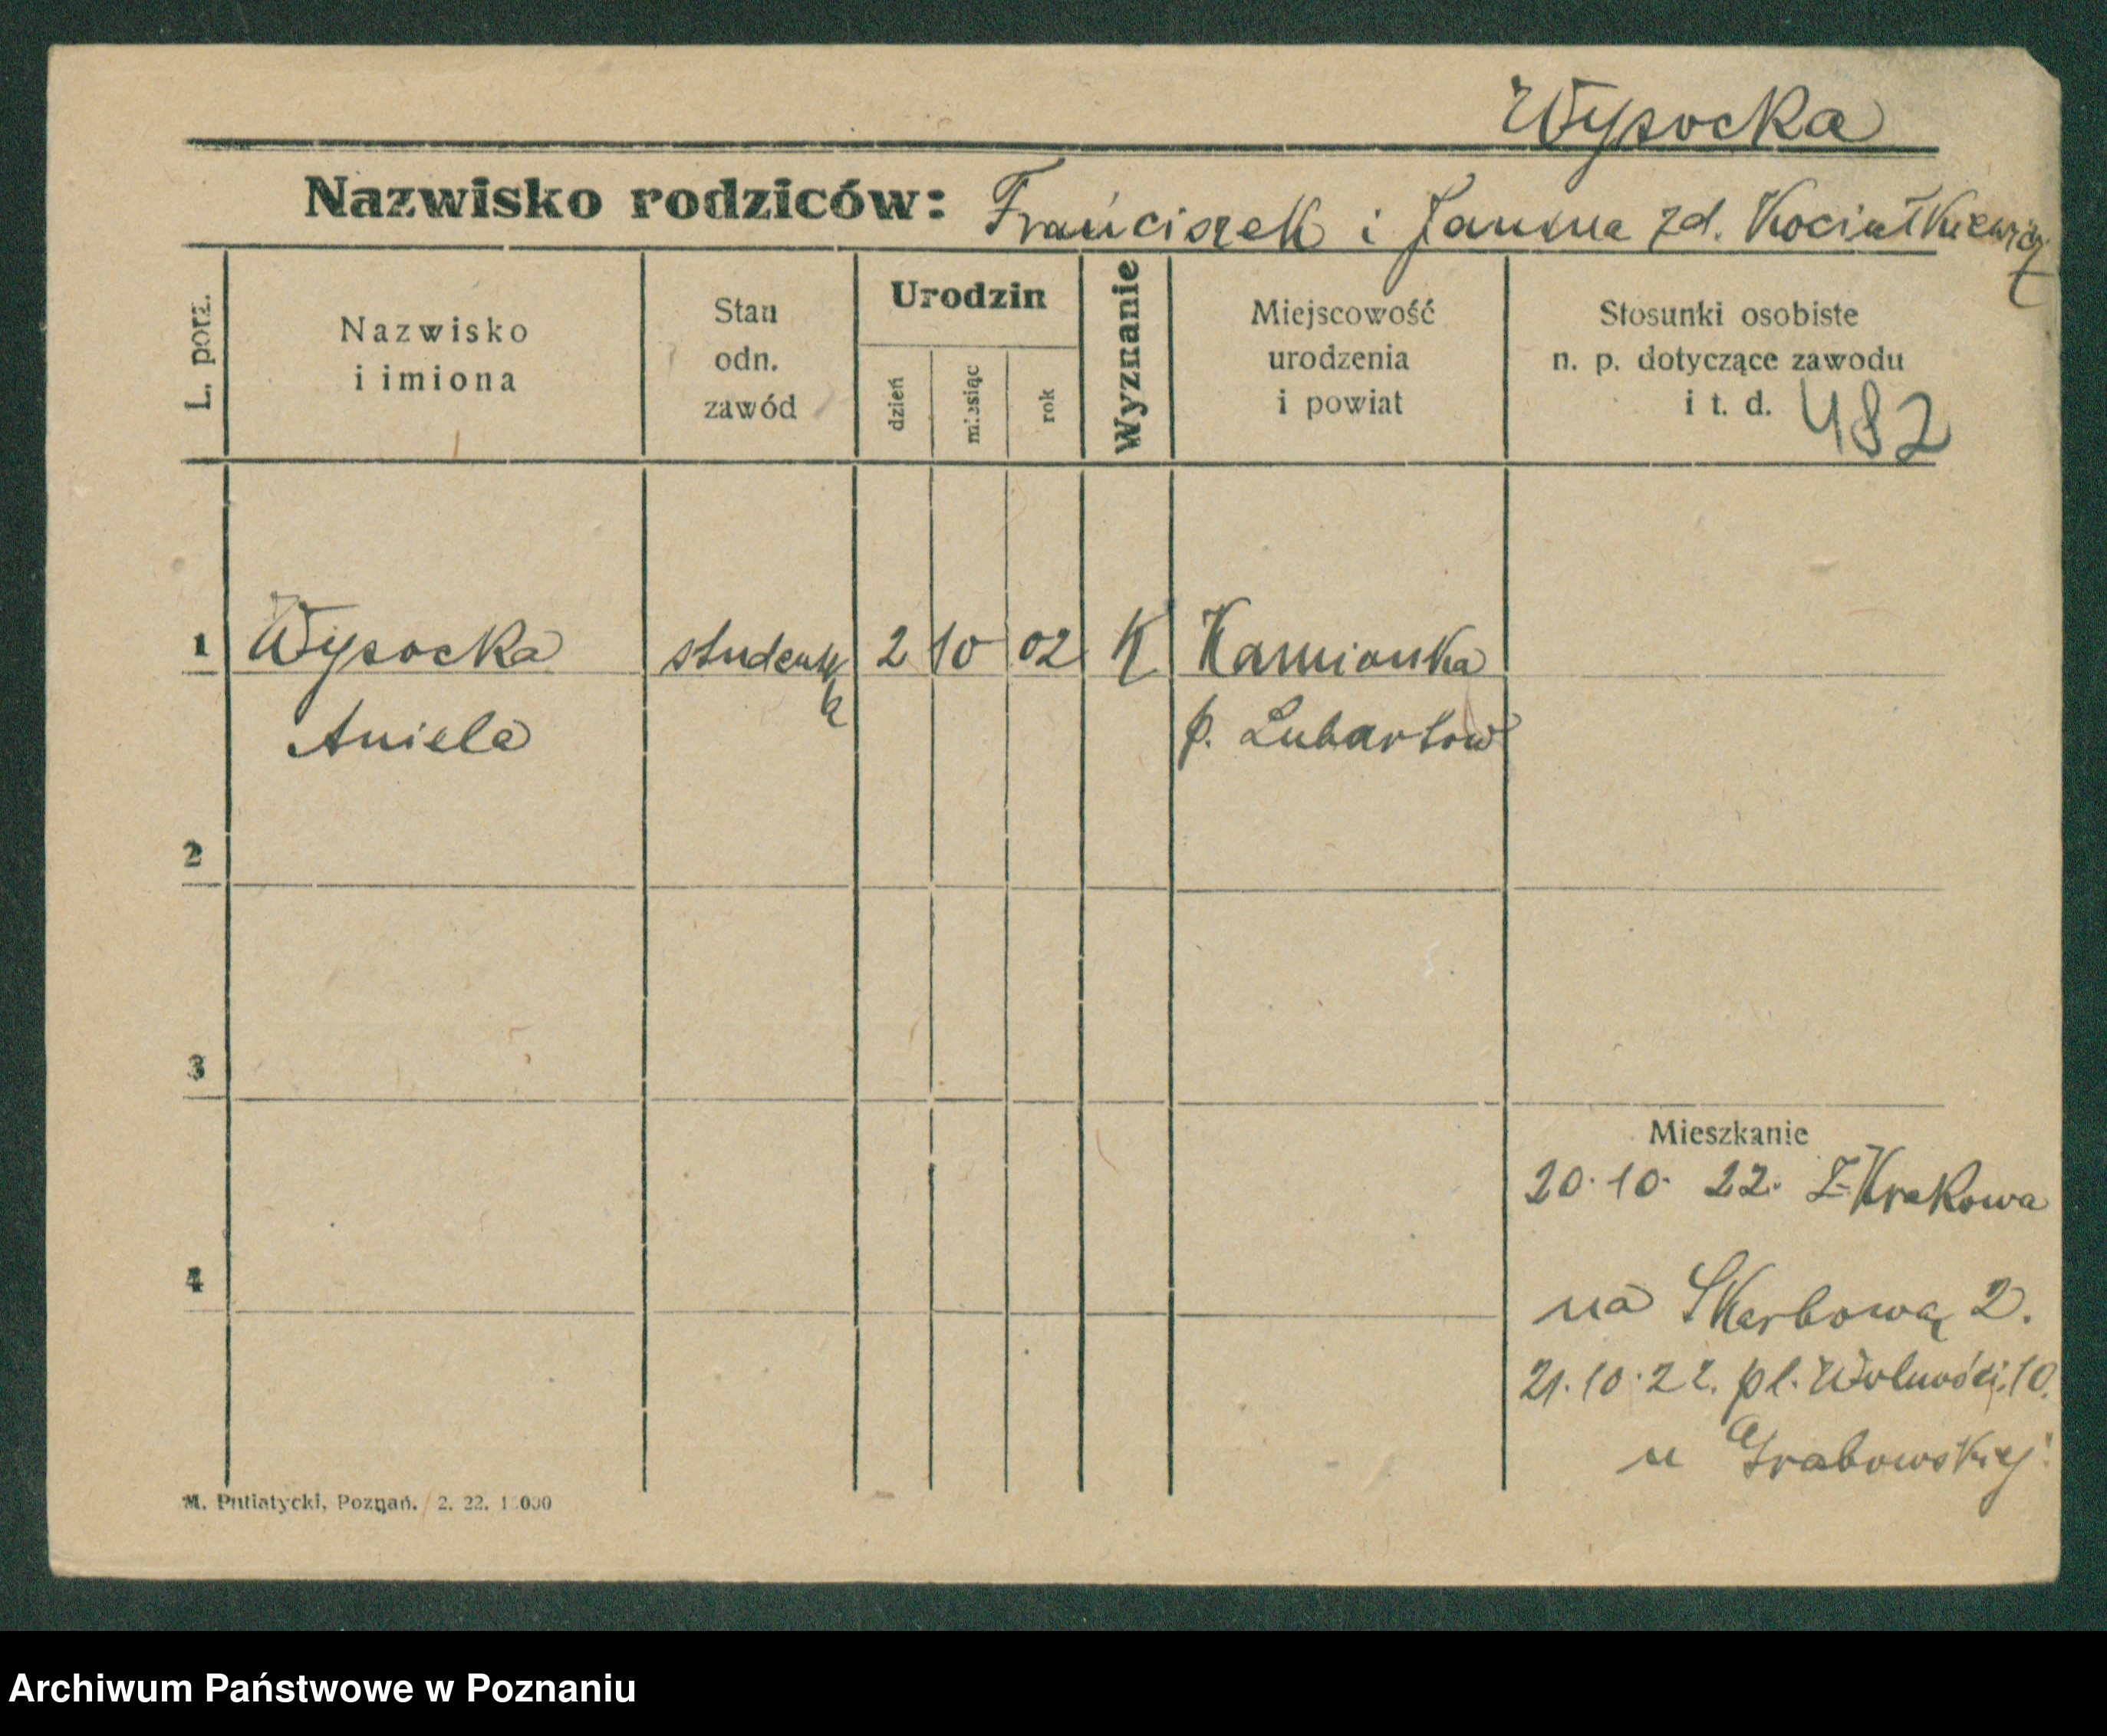 Wysocka
Nazwisko rodziców: Franciszek i Janina zd. Kociałkiewicz
L. porz.
Nazwisko
i imiona
Stan
odn.
zawód
Urodzin
dzień
miesiąc
rok
Wyznanie
Miejscowość
urodzenia
i powiat
Stosunki osobiste
n. p. dotyczące zawodu
i t. d. 482
1 Wysocka studentka 2 10 02 K Kamionka
Aniela p. Lubartow
2
3
Mieszkanie
20.10. 22. Z Krakowa
4
na Skarbową 2.
21.10.22. pl. Wolności 10.
u Grabowskiej
M. Putiatycki, Poznań. 2. 22.
Archiwum Państwowe w Poznaniu